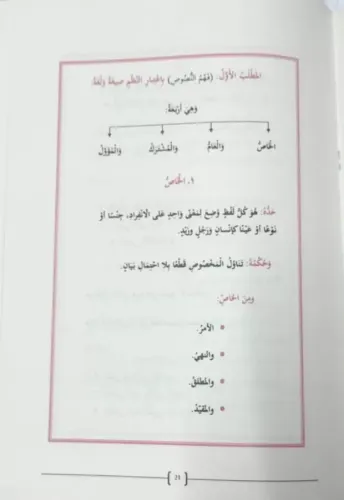 المَطْلَبُ الأَوَّلُ: (فَهْمُ النُّصُوصِ) بِاعْتِبَارِ النَّظْمِ صِيغَةً وَلُغَةً
وَهِيَ أَرْبَعَةٌ:
الخَاصُّ وَالعَامُّ وَالمُشْتَرَكُ وَالمُؤَوَّلُ
١. الخَاصُّ
حَدُّهُ: هُوَ كُلُّ لَفْظٍ وُضِعَ لِمَعْنًى وَاحِدٍ عَلَى الانْفِرَادِ، جِنْسًا أَوْ
نَوْعًا أَوْ عَيْنًا كَإِنْسَانٍ وَرَجُلٍ وَزَيْدٍ.
وَحُكْمُهُ: تَنَاوُلُ المَخْصُوصِ قَطْعًا بِلَا احْتِمَالِ بَيَانٍ.
وَمِنَ الخَاصِّ:
• الأَمْرُ.
• وَالنَّهْيُ.
• وَالمُطْلَقُ.
• وَالمُقَيَّدُ.